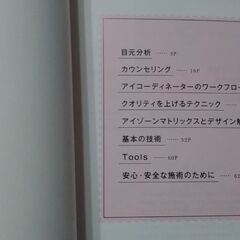 目元分析 …… 5P
カウンセリング …… 16P
アイコーディネーターのワークフロ
クオリティを上げるテクニック ……
アイゾーンマトリックスとデザイン解
基本の技術 …… 52P
Tools …… 60P
安心・安全な施術のために …… 6